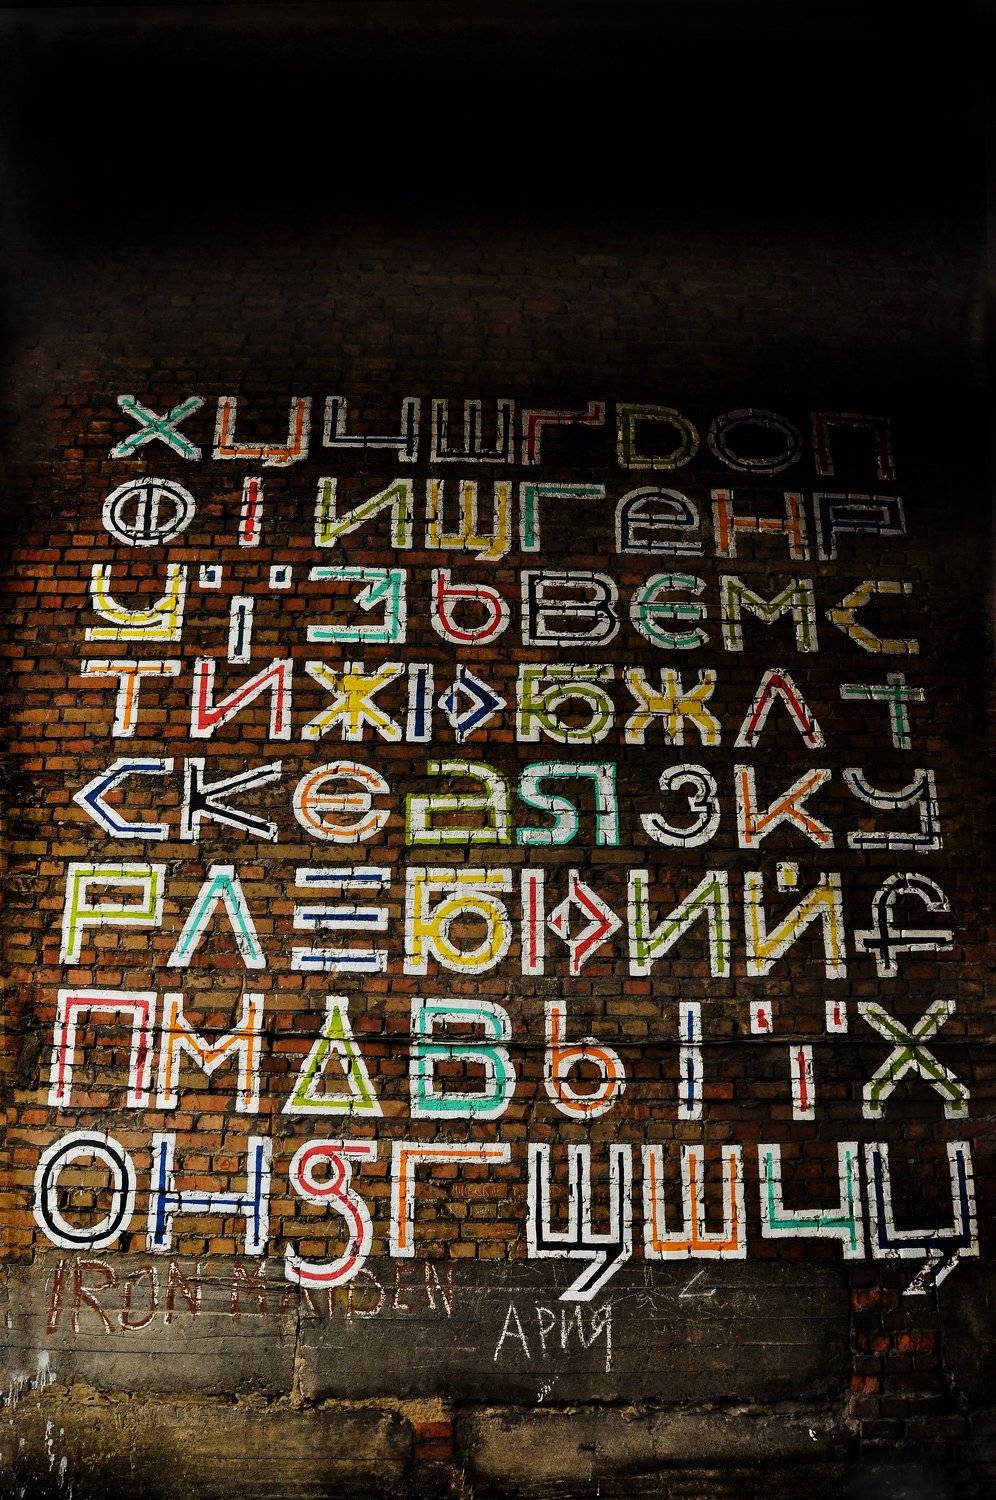 ХЦЧШҐDОП
ФІИЩГЕНР
УЇЗЬВЄМС
ТИЖЮБЖЛТ
СКЕаЯЗКУ
РЛΞБЮИЙf
ПМΔВЬІЇХ
ОНgГЩШЧЦ
IRON MAIDEN
АРИЯ